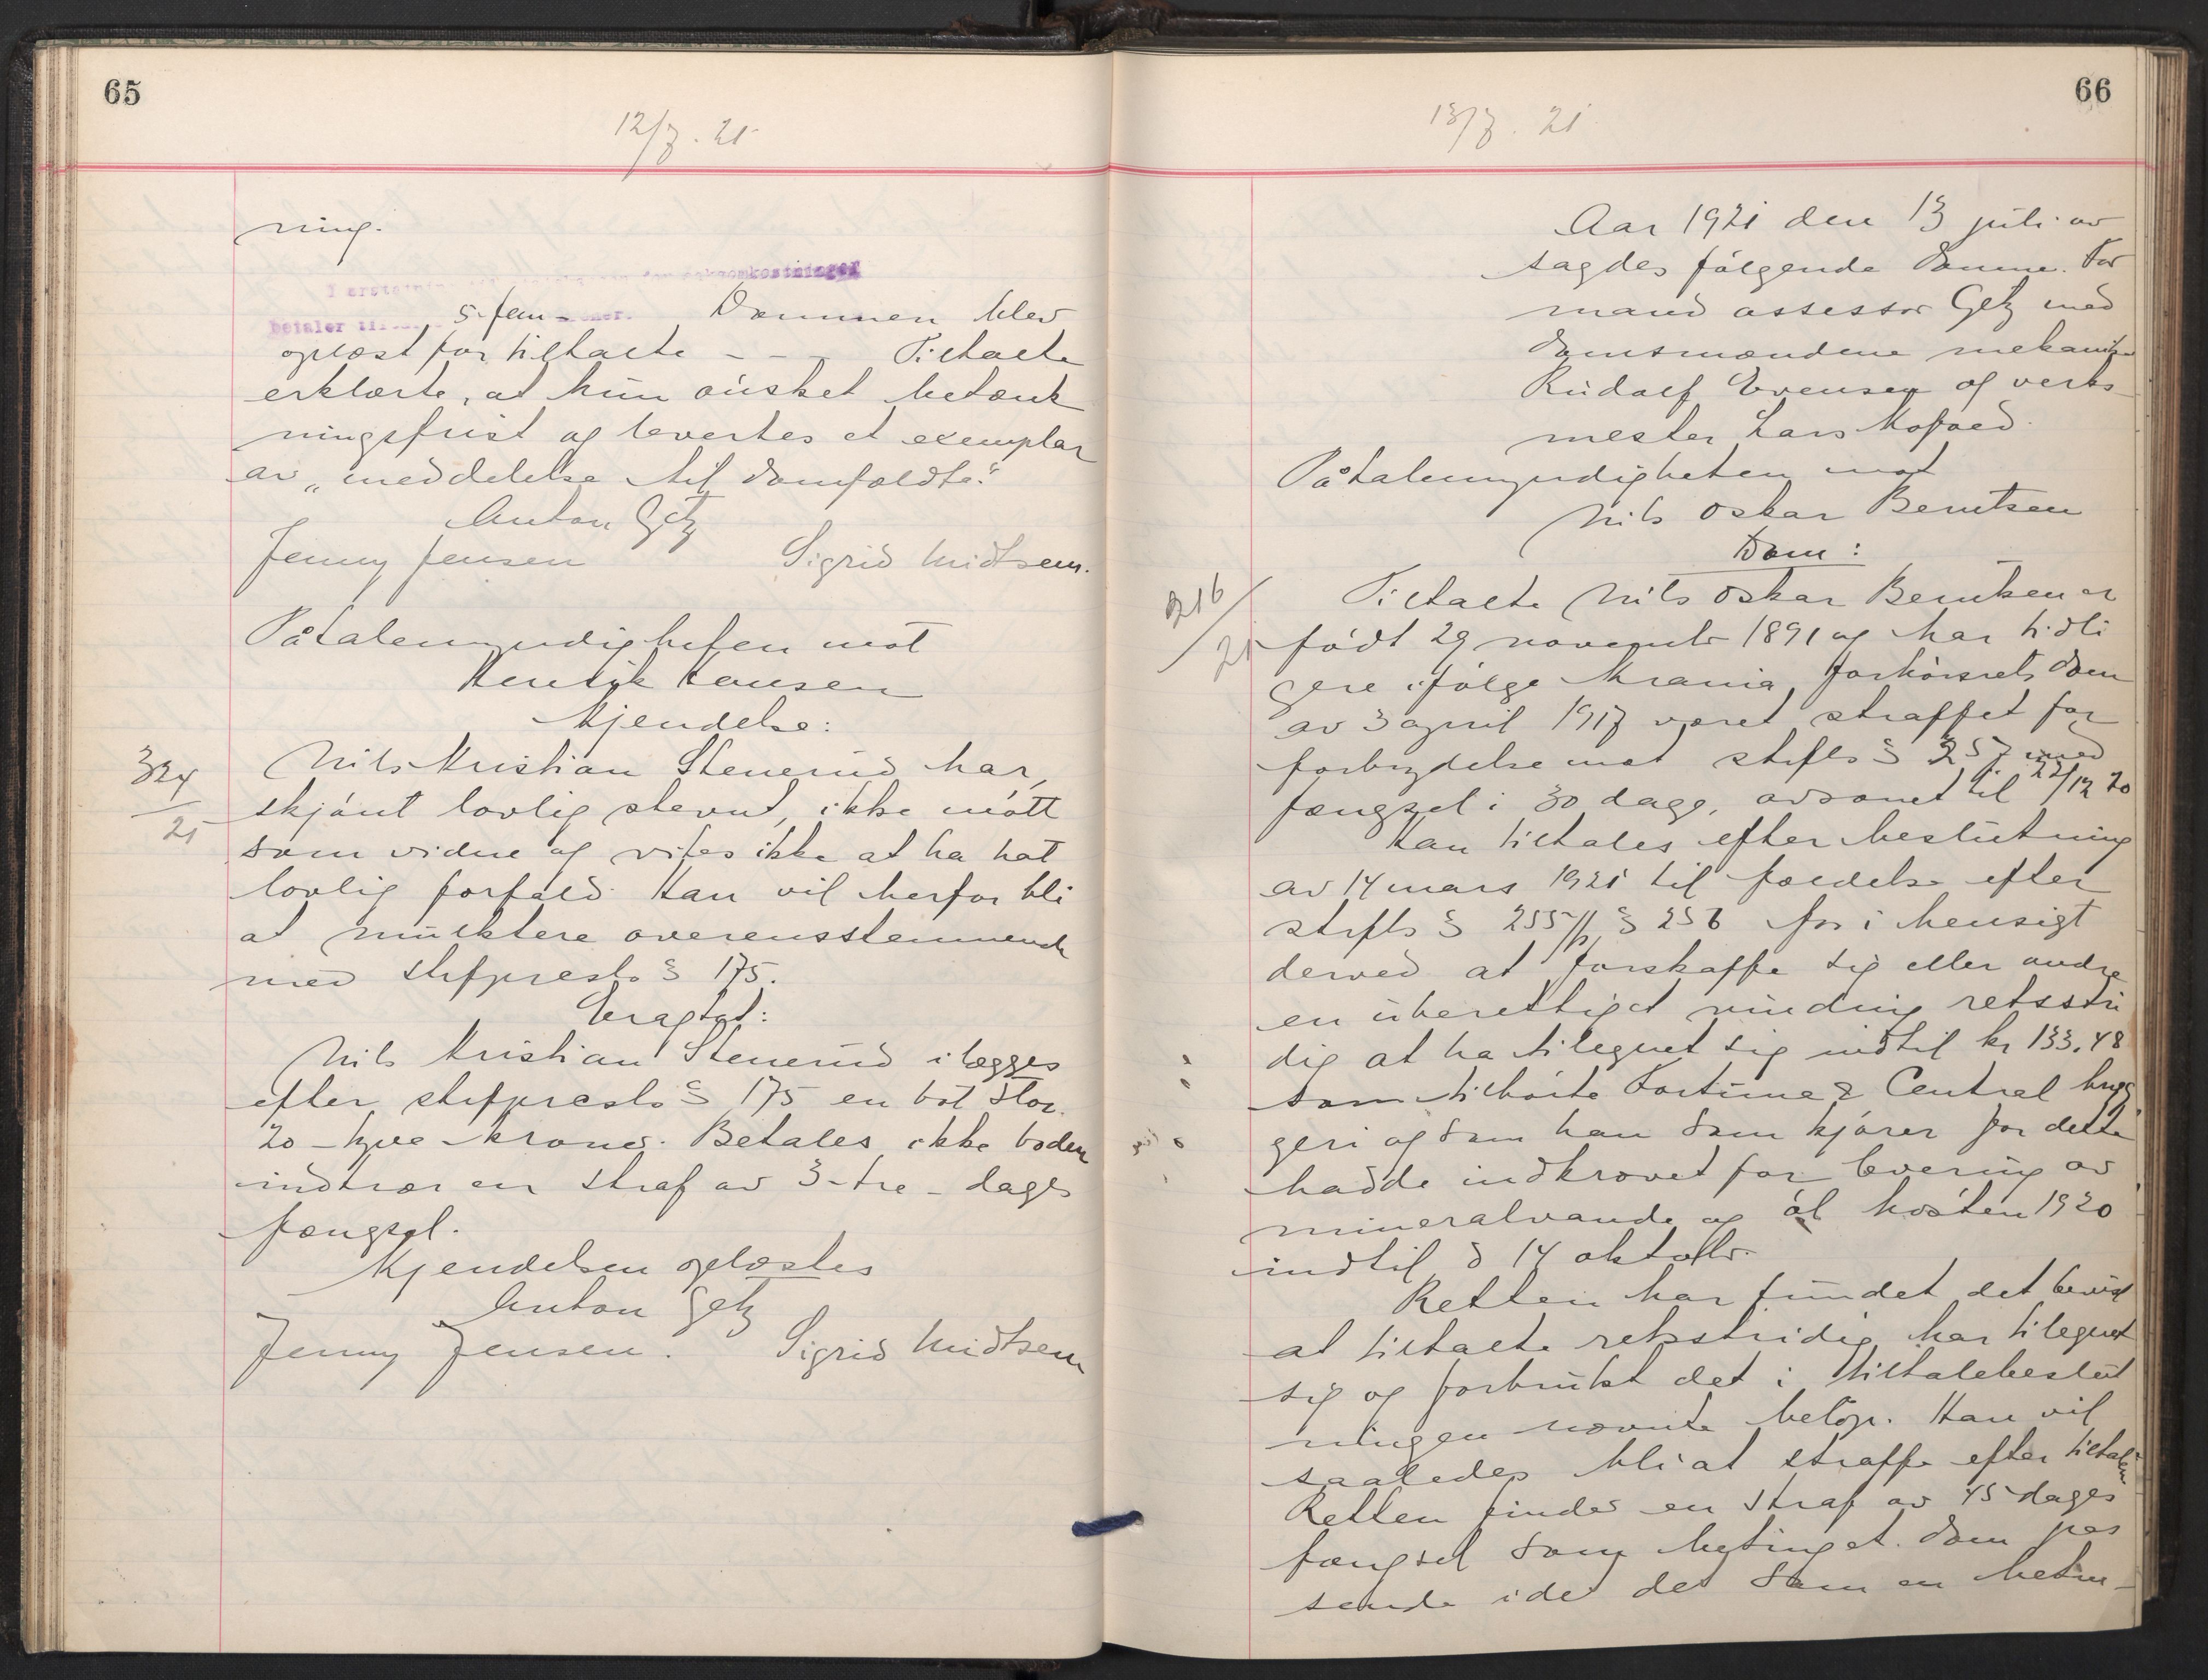 65
12/7. 21
ning.
I erstatning sakomkostninger
betaler til 5-fem- kroner. Dommen blev
oplæst for tiltalte - - - Tiltalte
erklærte, at hun ønsket betænk
ningsfrist og levertes et exemplar
av „meddelelse til domfældte."
Anton Getz
Jenny Jensen Sigrid Midtsem.
Påtalemyndigheten mot
Henrik Hansen
Kjendelse:
324
21
Nils Kristian Stenerud har,
skjønt lovlig stevnt, ikke møtt
som vidne og vites ikke at ha hat
lovlig forfald. Han vil herfor bli
at mulktere overensstemmende
med stfprcsls § 175.
Eragtet:
Nils Kristian Stenerud ilægges
efter stfprcsls § 175 en bot stor
20 - tyve - kroner. Betales ikke boden
indtrær en straf av 3-tre-dages
fængsel.
Kjendelsen oplæstes
Anton Getz
Jenny Jensen. Sigrid Midtsem
66
13/7. 21
Aar 1921 den 13 juli av
sagdes følgende domme. For
mand assessor Getz med
domsmændene mekaniker
Rudolf Evensen og verks
mester Lars Kofoed.
Påtalemyndigheten mot
Nils Oskar Berntsen
Dom:
216
21
Tiltalte Nils Oskar Berntsen er
født 29 novembr 1891 og har tidli
gere ifølge Krania forhørsrets dom
av 3 april 1917 været straffet for
forbrydelse mot stfls § 257 med
fængsel i 30 dage, avsonet til 22/12 20
Han tiltales efter beslutning
av 14 mars 1921 til fældelse efter
stfls § 255 jfr § 256 for i hensigt
derved at forskaffe sig eller andre
en uberettiget vinding retsstri
dig at ha tilegnet sig indtil kr 133,48
som tilhørte Fortuna & Central bryg
geri og som han som kjører for dette
hadde indkrævet for levering av
mineralvande og øl høsten 1920
indtil d 14 oktobr.
Retten har fundet det bevist
at tiltalte retsstridig har tilegnet
sig og forbrukt det i tiltalebeslut
ningen nævnte beløp. Han vil
saaledes bli at straffe efter tiltalen
Retten finder en straf av 45 dages
fængsel som betinget dom pas
sende idet det som en betin-